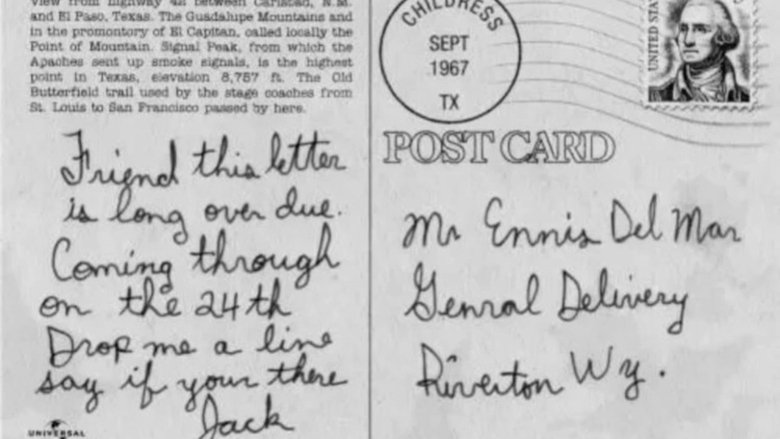 View from highway 42 between Carlsbad, N.M.
and El Paso, Texas. The Guadalupe Mountains and
in the promontory of El Capitan, called locally the
Point of Mountain. Signal Peak, from which the
Apaches sent up smoke signals, is the highest
point in Texas, elevation 8,757 ft. The Old
Butterfield trail used by the stage coaches from
St. Louis to San Francisco passed by here.
Friend this letter
is long over due.
Coming through
on the 24th
Drop me a line
say if your there
Jack
UNIVERSAL
CHILDRESS
SEPT
1967
TX
UNITED STATES
POST CARD
Mr Ennis Del Mar
Genral Delivery
Riverton Wy.